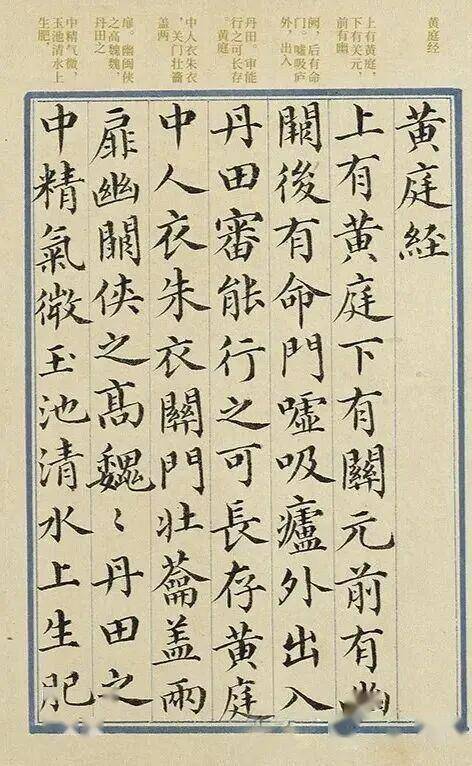 黄庭经
上有黄庭，
下有关元，
前有幽
阙，后有命
门。嘘吸庐
外，出入
丹田。审能
行之可长存
。黄庭
中人衣朱衣
，关门壮蘥
盖两
扉。幽阙侠
之高魏魏，
丹田之
中精气微，
玉池清水上
生肥。
黄庭経
上有黄庭下有關元前有幽
闕後有命門嘘吸廬外出入
丹田審能行之可長存黄庭
中人衣朱衣關門壮蘥盖兩
扉幽闕侠之髙魏〻丹田之
中精氣微玉池清水上生肥